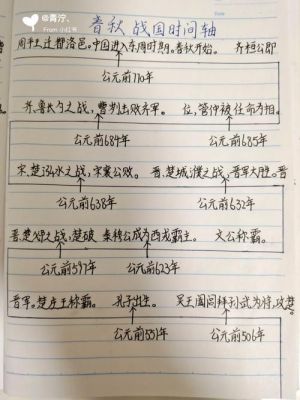 @青柠、
From 小红书
春秋战国时间轴
周平王迁都洛邑。中国进入东周时期。春秋开始。 齐桓公即
公元前770年
齐、鲁长勺之战,曹刿出败齐军。 位,管仲被任命为相。
公元前684年 公元前685年
宋、楚泓水之战,宋襄公败。 晋、楚城濮之战,晋军大胜。晋
公元前638年 公元前632年
晋、楚邲之战,楚破 秦穆公成为西戎霸主。 文公称霸。
公元前597年 公元前623年
晋军。楚庄王称霸。 孔子出生。 吴王阖闾拜孙武为将,攻楚
公元前551年 公元前506年